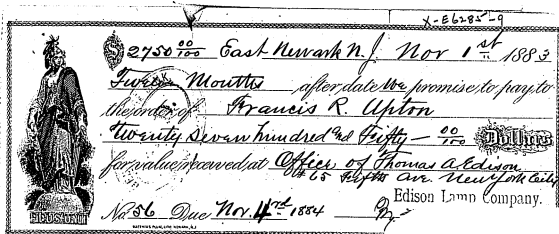 X-E6285-9
$2750 00/100 East Newark N. J. Nov 1st 1883
Twelve Months after date We promise to pay to
the order of Francis R. Upton
Twenty Seven hundred and Fifty — 00/100 Dollars
for value received at Office of Thomas A Edison
65 Fifth Ave New York City
Edison Lamp Company.
No 56 Due Nov. 4 1884